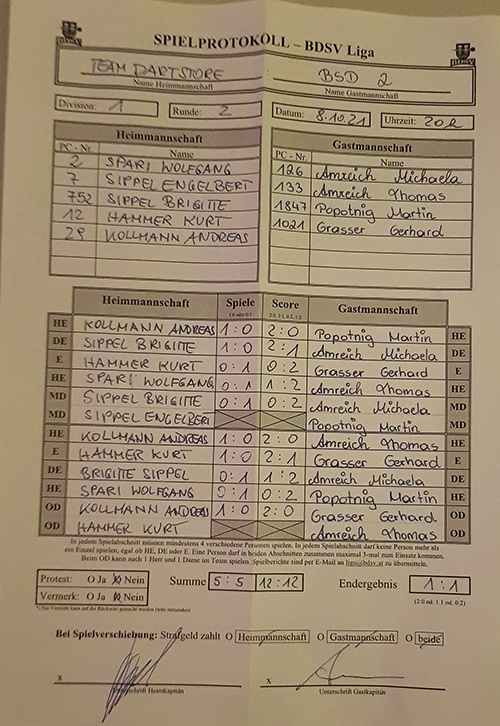 SPIELPROTOKOLL – BDSV Liga
BDSV
TEAM DARTSTORE BSD 2
Name Heimmannschaft Name Gastmannschaft
Division: 1 Runde: 2 Datum: 8.10.21 Uhrzeit: 20
Heimmannschaft Gastmannschaft
PC - Nr. Name PC - Nr. Name
2 SPARI WOLFGANG 126 Amreich Michaela
7 SIPPEL ENGELBERT 133 Amreich Thomas
752 SIPPEL BRIGITTE 1847 Popotnig Martin
12 HAMMER KURT 1021 Grasser Gerhard
29 KOLLMANN ANDREAS
Heimmannschaft Spiele Score Gastmannschaft
1:0 oder 0:1 2:0, 2:1, 0:2, 1:2
HE KOLLMANN ANDREAS 1 : 0 2 : 0 Popotnig Martin HE
DE SIPPEL BRIGITTE 1 : 0 2 : 1 Amreich Michaela DE
E HAMMER KURT 0 : 1 0 : 2 Grasser Gerhard E
HE SPARI WOLFGANG 0 : 1 1 : 2 Amreich Thomas HE
MD SIPPEL BRIGITTE 0 : 1 0 : 2 Amreich Michaela MD
MD SIPPEL ENGELBERT Popotnig Martin MD
HE KOLLMANN ANDREAS 1 : 0 2 : 0 Amreich Thomas HE
E HAMMER KURT 1 : 0 2 : 1 Grasser Gerhard E
DE BRIGITTE SIPPEL 0 : 1 1 : 2 Amreich Michaela DE
HE SPARI WOLFGANG 0 : 1 0 : 2 Popotnig Martin HE
OD KOLLMANN ANDREAS 1 : 0 2 : 0 Grasser Gerhard OD
OD HAMMER KURT Amreich Thomas OD
In jedem Spielabschnitt müssen mindestens 4 verschiedene Personen spielen. In jedem Spielabschnitt darf keine Person mehr als
ein Einzel spielen, egal ob HE, DE oder E. Eine Person darf in beiden Abschnitten zusammen maximal 3-mal zum Einsatz kommen.
Beim OD kann auch 1 Herr und 1 Dame im Team spielen. Spielberichte sind per E-Mail an liga@bdsv.at zu übermitteln.
Protest: O Ja O Nein Summe 5 : 5 12 : 12 Endergebnis 1 : 1
Vermerk: O Ja O Nein (2:0 od. 1:1 od. 0:2)
*) Ein Vermerk kann auf der Rückseite gemacht werden (bitte umwenden)
Bei Spielverschiebung: Strafgeld zahlt O Heimmannschaft O Gastmannschaft O beide
x x
Unterschrift Heimkapitän Unterschrift Gastkapitän